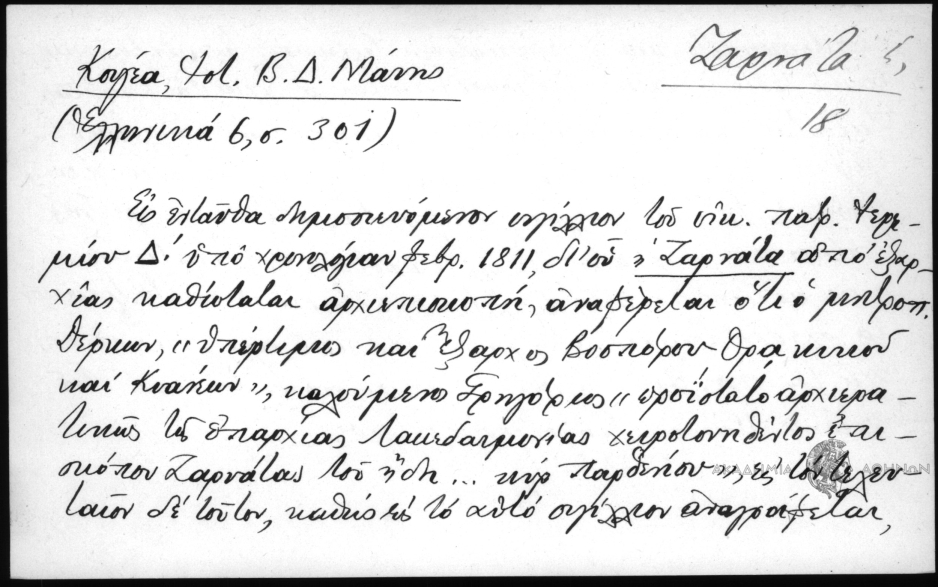 Κουγέα, Ἱστ. Β. Δ. Μάνης
Ζαρνάτα
18
(Ἑλληνικά 6, σ. 301)
Εἰς ἐνταῦθα δημοσιευόμενον σιγίλλιον τοῦ οἰκ. πατρ. Ἱερε-
μίου Δ΄. ὑπό χρονολογίαν φεβρ. 1811, δι' οὗ ἡ Ζαρνάτα ἀπό ἐξαρ-
χίας καθίσταται ἀρχιεπισκοπή, ἀναφέρεται ὅτι ὁ μητροπ.
Δέρκων, "ὑπέρτιμος καί ἔξαρχος Βοσπόρου Θρακικοῦ
καί Κυανέων", καλούμενος Γρηγόριος "προΐστατο ἀρχιερα-
τικῶς τῆς ἐπαρχίας Λακεδαιμονίας χειροτονηθέντος ἐπι-
σκόπου Ζαρνάτας τοῦ ἤδη ... κύρ Παρθενίου", εἰς τόν τελευ-
ταῖον δέ τοῦτον, καθώς εἰς τό αὐτό σιγίλλιον ἀναγράφεται,
ΑΚΑΔΗΜΙΑ ΑΘΗΝΩΝ